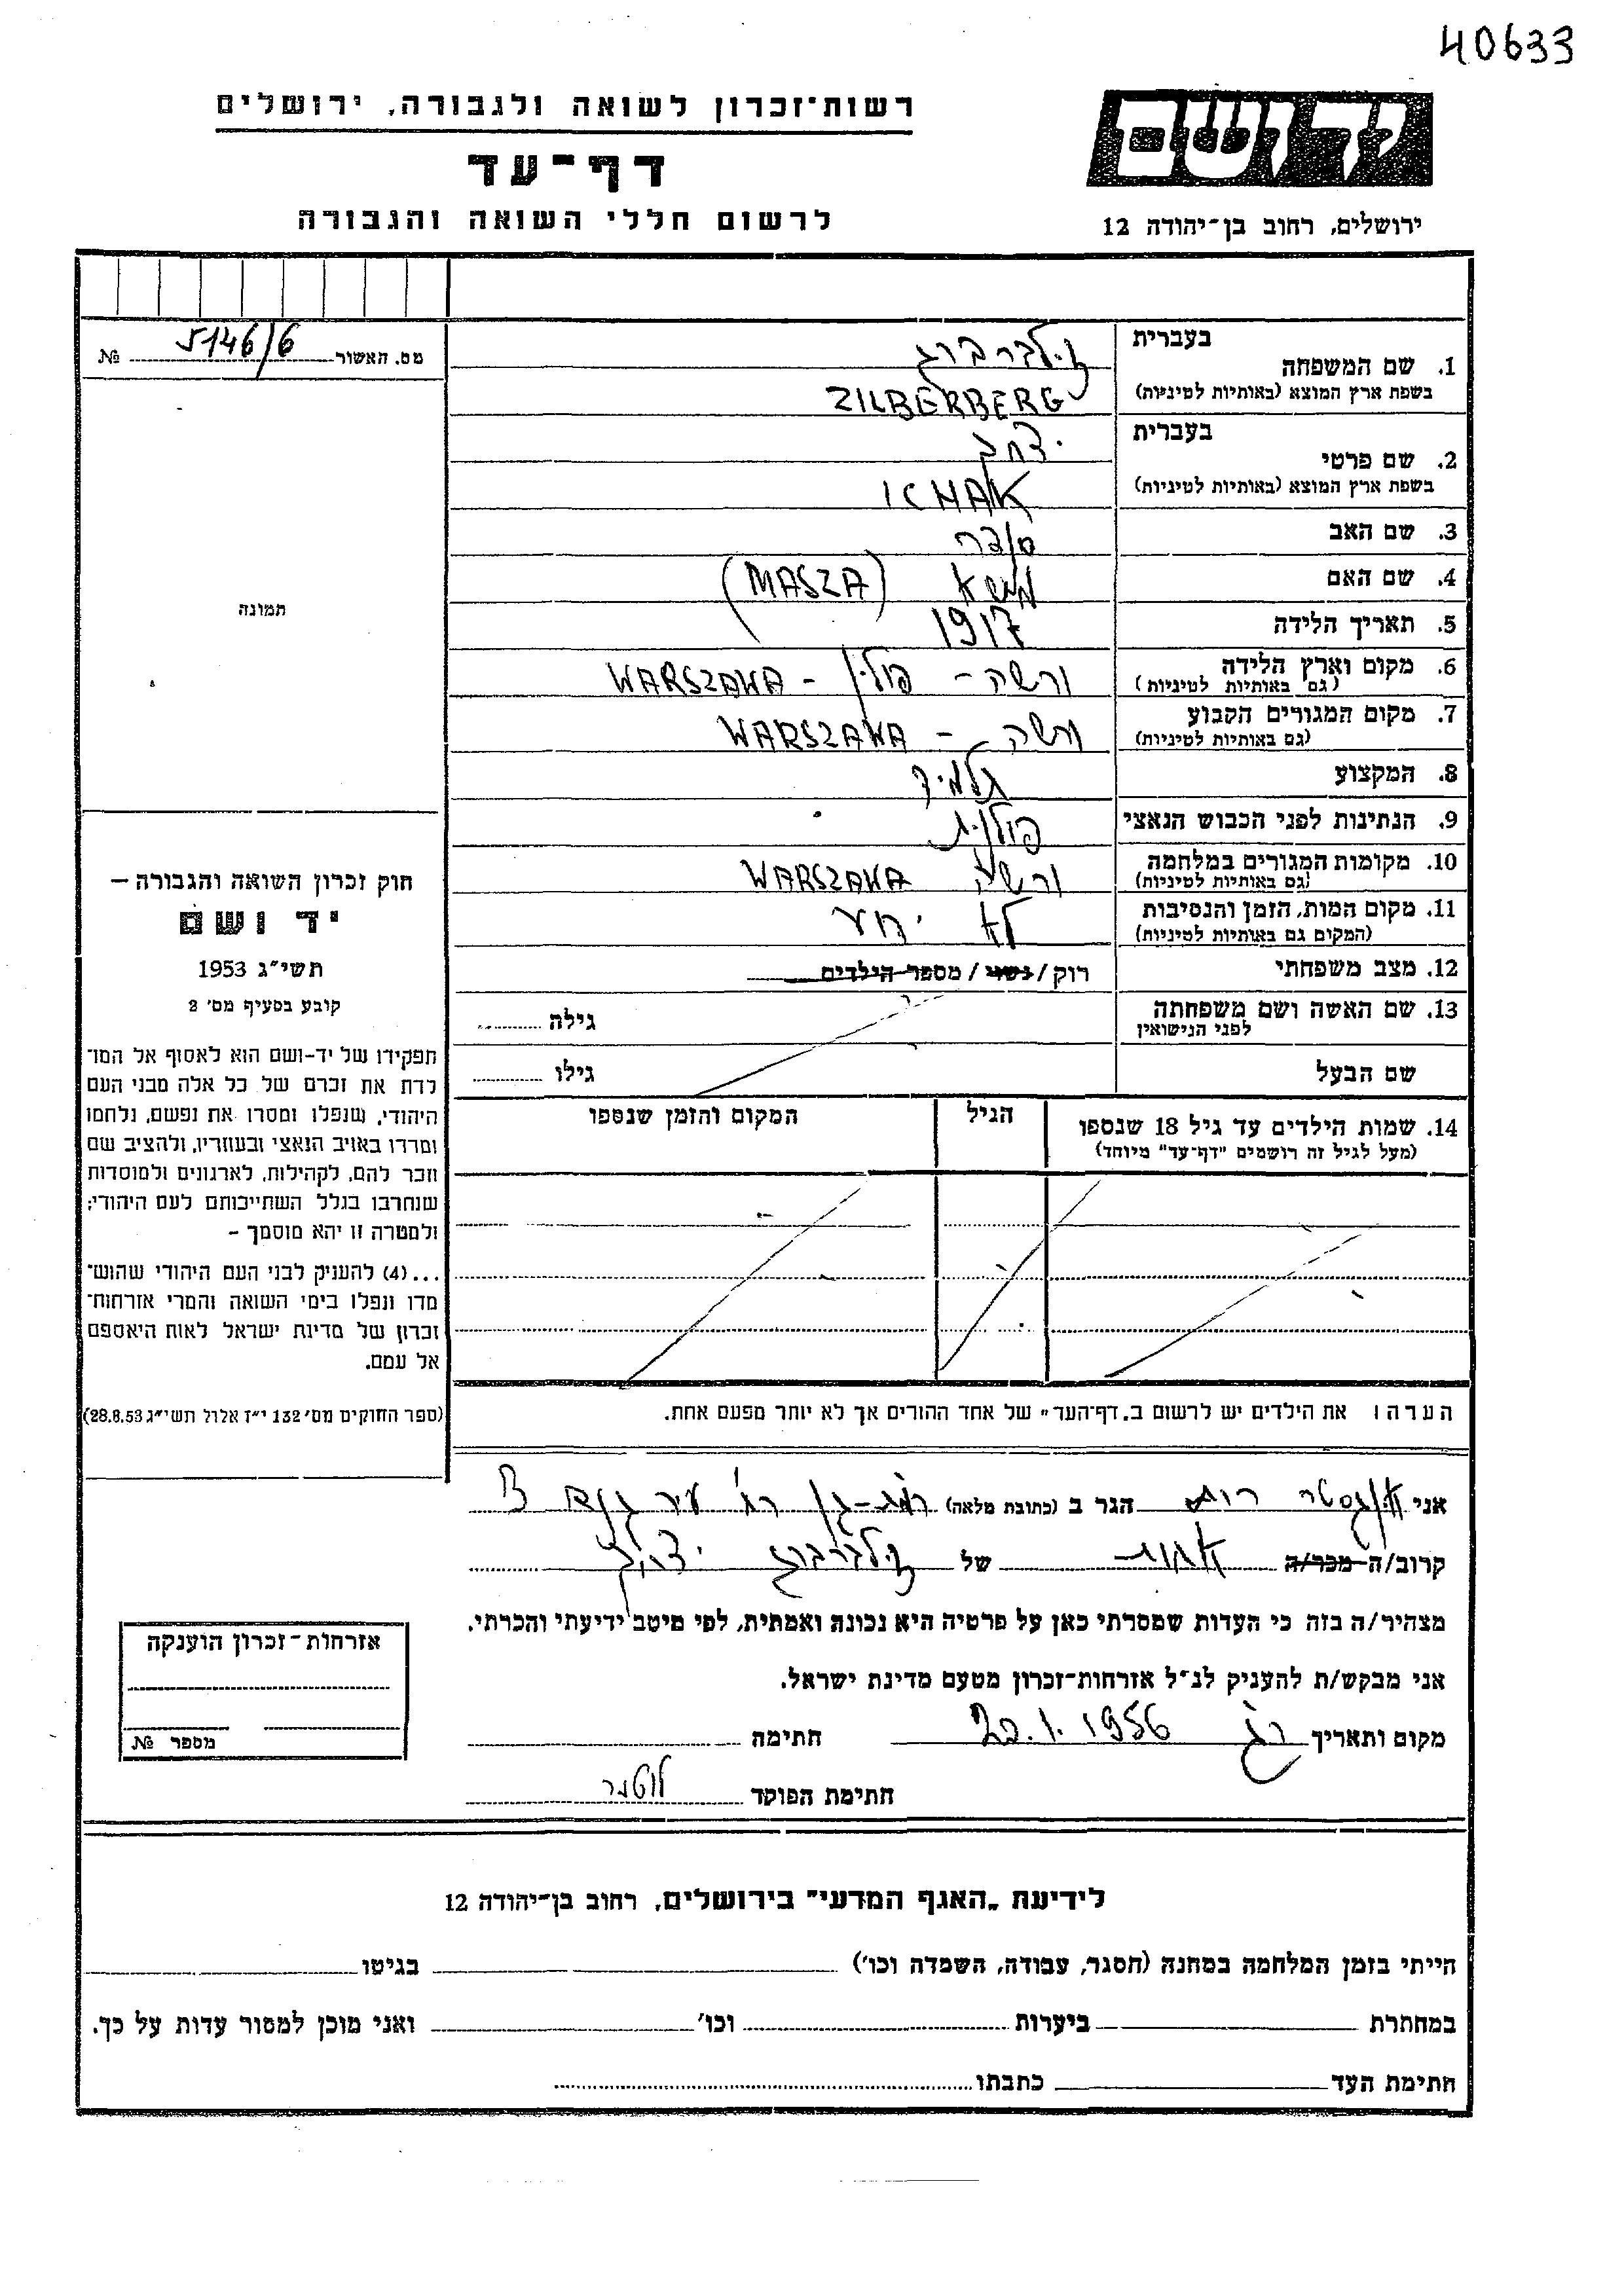 40633
רשות־זכרון לשואה ולגבורה, ירושלים
יד ושם
דף־עד
לרשום חללי השואה והגבורה
ירושלים, רחוב בן־יהודה 12
מס. האשור 5146/6 №
תמונה
חוק זכרון השואה והגבורה —
יד ושם
תשי״ג 1953
קובע בסעיף מס׳ 2
תפקידו של יד-ושם הוא לאסוף אל המו־
לדת את זכרם של כל אלה מבני העם
היהודי, שנפלו ומסרו את נפשם, נלחמו
ומרדו באויב הנאצי ובעוזריו, ולהציב שם
וזכר להם, לקהילות, לארגונים ולמוסדות
שנחרבו בגלל השתייכותם לעם היהודי;
ולמטרה זו יהא מוסמך –
...(4) להעניק לבני העם היהודי שהוש־
מדו ונפלו בימי השואה והמרי אזרחות־
זכרון של מדינת ישראל לאות היאספם
אל עמם.
(ספר החוקים מס׳ 132 י״ז אלול תשי״ג 28.8.53)
בעברית זילברברג
1. שם המשפחה
בשפת ארץ המוצא (באותיות לטיניות) ZILBERBERG
בעברית יצחק
2. שם פרטי
בשפת ארץ המוצא (באותיות לטיניות) ICHAK
3. שם האב
4. שם האם משא (MASZA)
5. תאריך הלידה 1917
6. מקום וארץ הלידה ורשה – פולין – WARSZAWA
(גם באותיות לטיניות)
7. מקום המגורים הקבוע ורשה – WARSZAWA
(גם באותיות לטיניות)
8. המקצוע תלמיד
9. הנתינות לפני הכבוש הנאצי פולנית
10. מקומות המגורים במלחמה ורשה WARSZAWA
(גם באותיות לטיניות)
11. מקום המות, הזמן והנסיבות לא ידוע
(המקום גם באותיות לטיניות)
12. מצב משפחתי רוק / נשוי / מספר הילדים
13. שם האשה ושם משפחתה גילה
לפני הנישואין
שם הבעל גילו
14. שמות הילדים עד גיל 18 שנספו הגיל המקום והזמן שנספו
(מעל לגיל זה רושמים "דף־עד" מיוחד)
הערה: את הילדים יש לרשום ב„דף־העד״ של אחד ההורים אך לא יותר מפעם אחת.
אני רות הגר ב (כתובת מלאה) רמת-גן רח׳ עיר גנים
קרוב/ה מכר/ה אחות של זילברברג יצחק
מצהיר/ה בזה כי העדות שמסרתי כאן על פרטיה היא נכונה ואמתית, לפי מיטב ידיעתי והכרתי.
אני מבקש/ת להעניק לנ״ל אזרחות-זכרון מטעם מדינת ישראל.
מקום ותאריך רג 22.1.1956 חתימה
חתימת הפוקד
אזרחות-זכרון הוענקה
מספר №
לידיעת „האגף המדעי״ בירושלים, רחוב בן־יהודה 12
הייתי בזמן המלחמה במחנה (הסגר, עבודה, השמדה וכו׳) בגיטו
במחתרת ביערות וכו׳ ואני מוכן למסור עדות על כך.
חתימת העד כתבתו